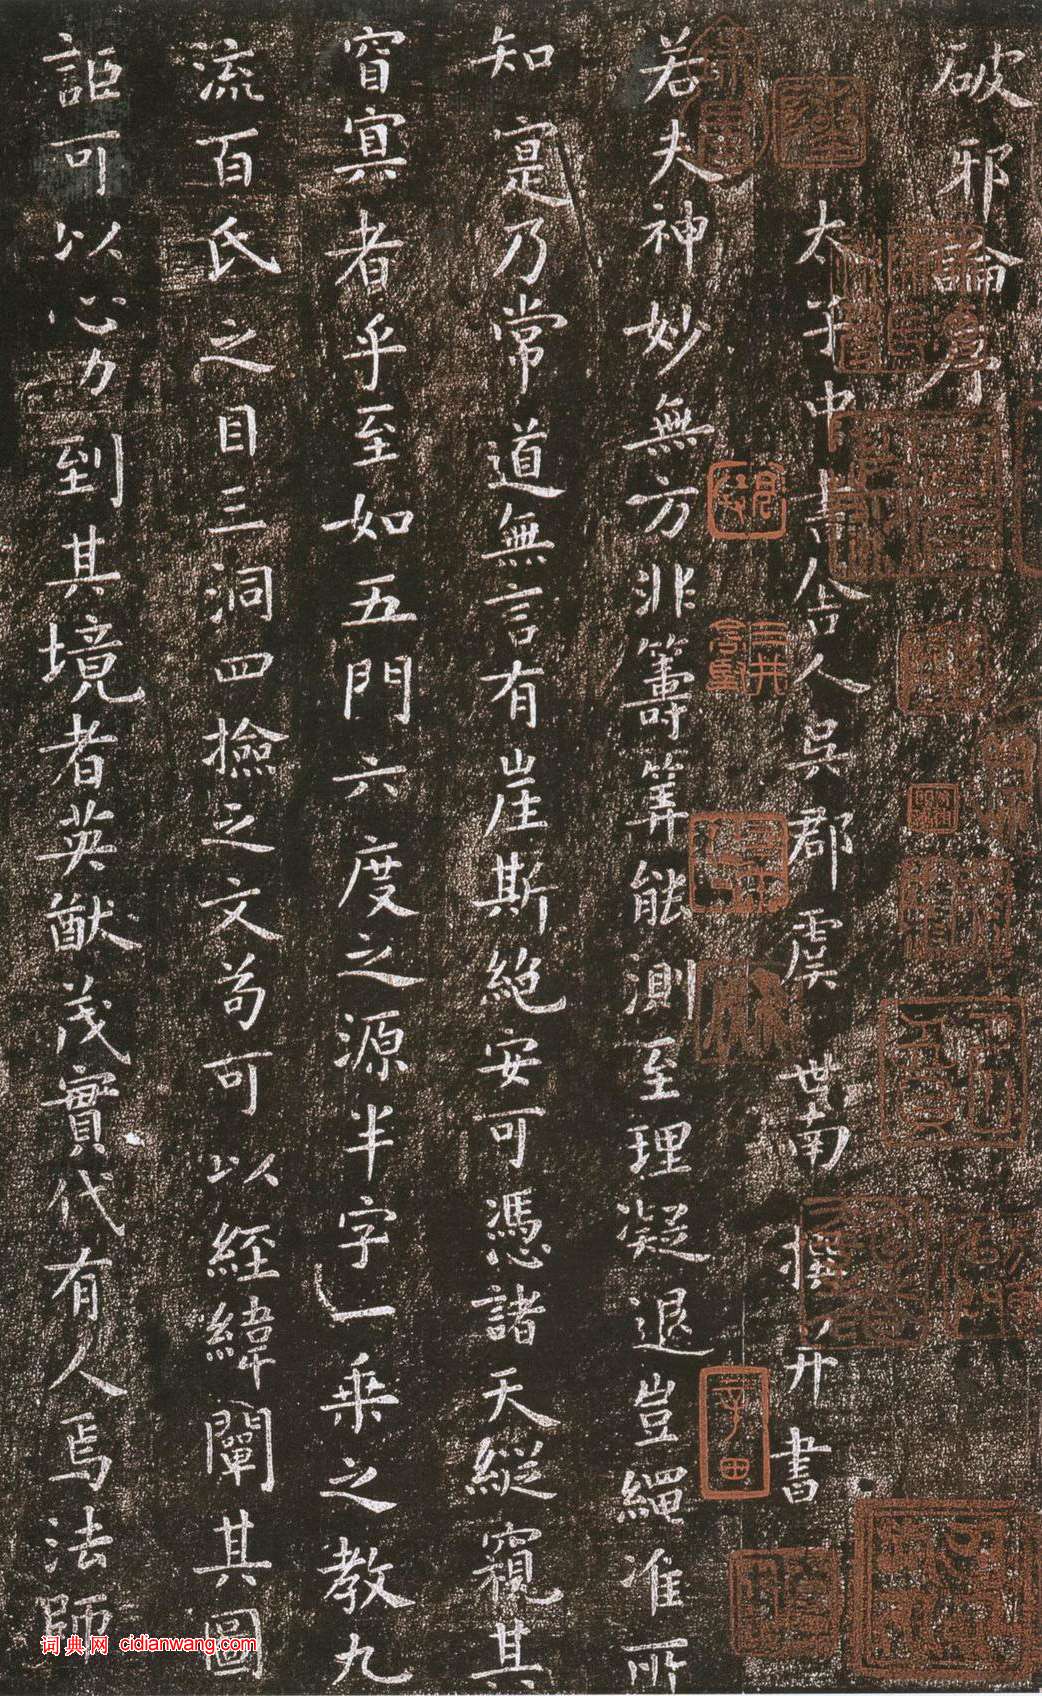 破邪論序
太子中書舍人吳郡虞世南撰并書
若夫神妙無方非籌筭能測至理凝退豈繩准所
知寔乃常道無言有崖斯絶安可憑諸天縱窺其
窅寘者乎至如五門六度之源半字一乗之教九
流百氏之目三洞四撿之文苟可以經緯闡其圖
詎可以心力到其境者英猷茂實代有人焉法師
词典网 cidianwang.com